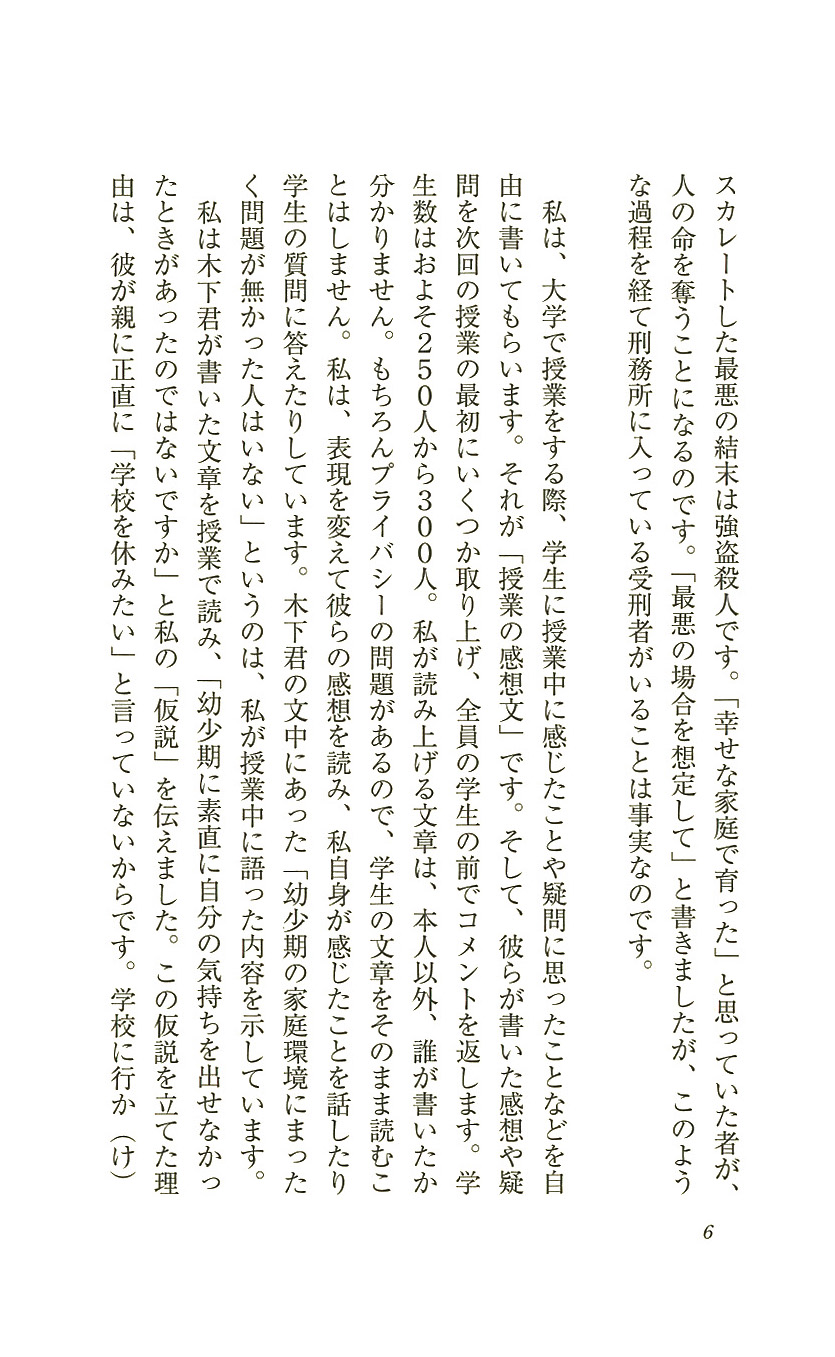 スカレートした最悪の結末は強盗殺人です。「幸せな家庭で育った」と思っていた者が、
人の命を奪うことになるのです。「最悪の場合を想定して」と書きましたが、このよう
な過程を経て刑務所に入っている受刑者がいることは事実なのです。
私は、大学で授業をする際、学生に授業中に感じたことや疑問に思ったことなどを自
由に書いてもらいます。それが「授業の感想文」です。そして、彼らが書いた感想や疑
問を次回の授業の最初にいくつか取り上げ、全員の学生の前でコメントを返します。学
生数はおよそ250人から300人。私が読み上げる文章は、本人以外、誰が書いたか
分かりません。もちろんプライバシーの問題があるので、学生の文章をそのまま読むこ
とはしません。私は、表現を変えて彼らの感想を読み、私自身が感じたことを話したり
学生の質問に答えたりしています。木下君の文中にあった「幼少期の家庭環境にまった
く問題が無かった人はいない」というのは、私が授業中に語った内容を示しています。
私は木下君が書いた文章を授業で読み、「幼少期に素直に自分の気持ちを出せなかっ
たときがあったのではないですか」と私の「仮説」を伝えました。この仮説を立てた理
由は、彼が親に正直に「学校を休みたい」と言っていないからです。学校に行か（け）
6